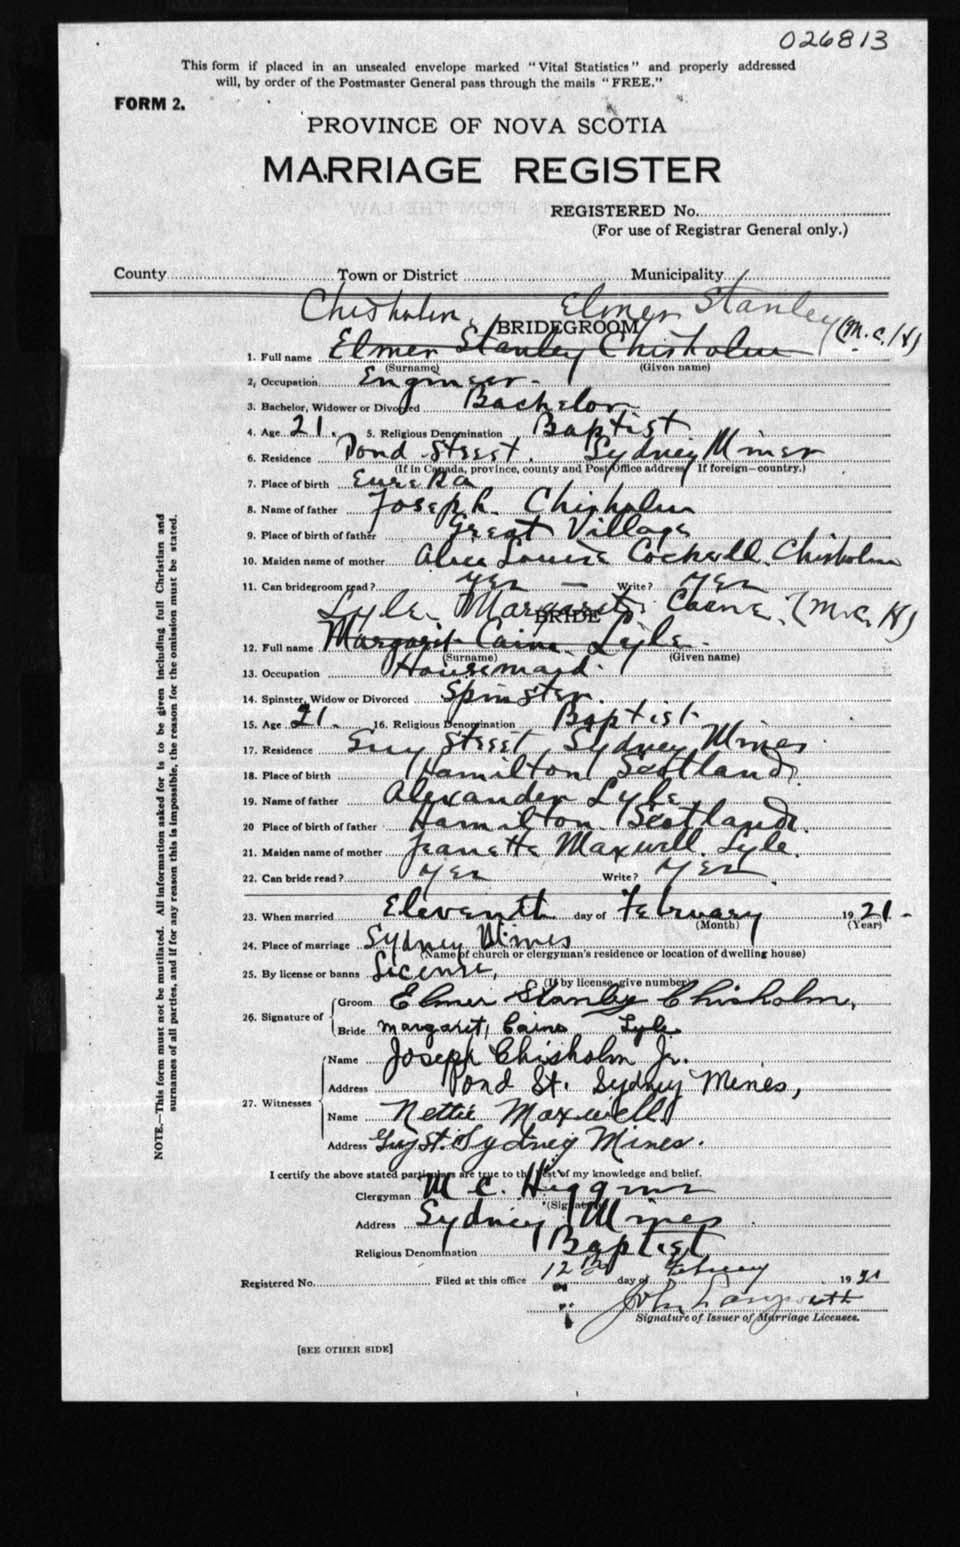 026813
This form if placed in an unsealed envelope marked "Vital Statistics" and properly addressed
will, by order of the Postmaster General pass through the mails "FREE."
FORM 2.
PROVINCE OF NOVA SCOTIA
MARRIAGE REGISTER
REGISTERED No.
(For use of Registrar General only.)
County Town or District Municipality
Chisholm, Elmer Stanley (M.C.H)
BRIDEGROOM
1. Full name Elmer Stanley Chisholm
(Surname) (Given name)
2, Occupation Engineer.
3. Bachelor, Widower or Divorced Bachelor
4. Age 21. 5. Religious Denomination Baptist
6. Residence Pond Street. Sydney Mines
(If in Canada, province, county and Post Office address, If foreign—country.)
7. Place of birth Eureka
8. Name of father Joseph Chisholm
9. Place of birth of father Great Village
10. Maiden name of mother Alice Louise Chisholm
11. Can bridegroom read? Yes — Write? Yes
Lyle. Margaret. (M.C.H)
BRIDE
12. Full name Margaret Lyle.
(Surname) (Given name)
13. Occupation Housemaid.
14. Spinster, Widow or Divorced Spinster
15. Age 21. 16. Religious Denomination Baptist
17. Residence Guy Street, Sydney Mines
18. Place of birth Hamilton Scotland
19. Name of father Alexander Lyle
20 Place of birth of father Hamilton Scotland
21. Maiden name of mother Jeanette Maxwell Lyle.
22. Can bride read? Yes Write? Yes
23. When married Eleventh day of February 1921.
(Month) (Year)
24. Place of marriage Sydney Mines
(Name of church or clergyman's residence or location of dwelling house)
25. By license or banns License,
(If by license, give number)
26. Signature of Groom Elmer Stanley Chisholm,
Bride Margaret Lyle
27. Witnesses Name Joseph Chisholm Jr.
Address Pond St. Sydney Mines,
Name Nettie Maxwell
Address Guy St. Sydney Mines.
I certify the above stated particulars are true to the best of my knowledge and belief.
Clergyman M C. Higgins
(Signature)
Address Sydney Mines
Religious Denomination Baptist
Registered No. Filed at this office 12th day of February 1921
John Langworth
Signature of Issuer of Marriage Licenses.
[SEE OTHER SIDE]
NOTE.—This form must not be mutilated. All information asked for is to be given including full Christian and
surnames of all parties, and if for any reason this is impossible, the reason for the omission must be stated.